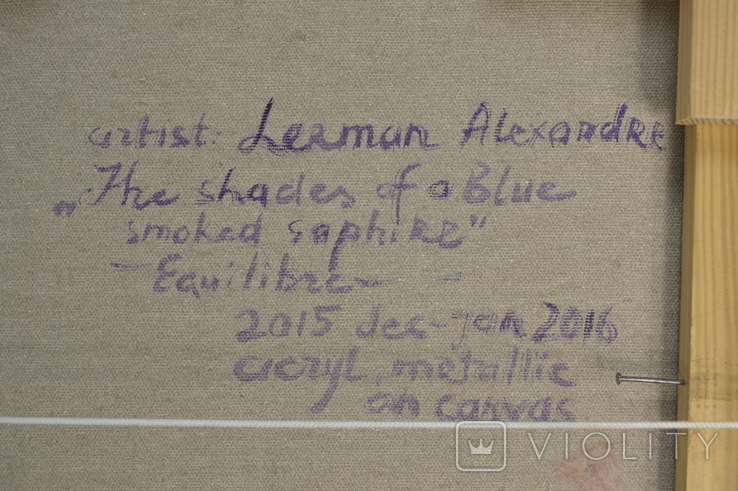 artist: Lerman Alexandre
„The shades of a Blue
smoked saphire"
- Equilibre -
2015 dec - jan 2016
acryl, metallic
on canvas
VIOLITY